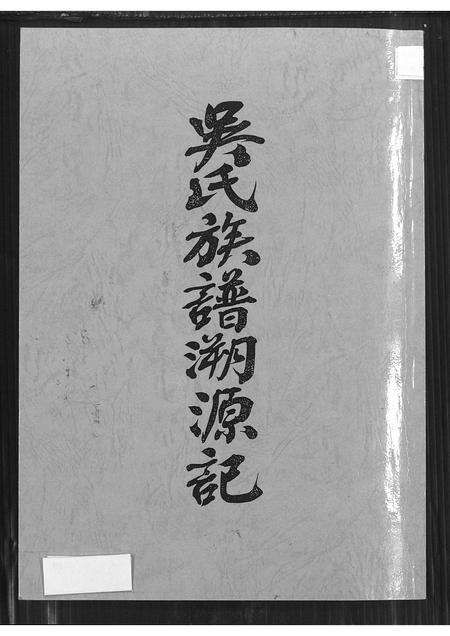 吳氏族譜溯源記